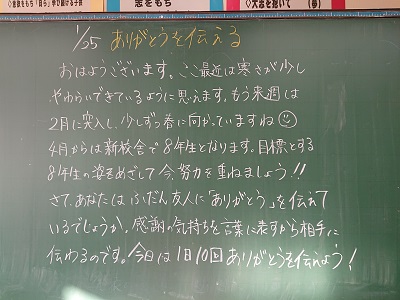 志をもち
◇大志を抱いて
1/25 ありがとうを伝える
おはようございます。ここ最近は寒さが少し
やわらいできているように思えます。もう来週は
2月に突入し、少しずつ春に向かっていますね
4月からは新校舎で8年生となります。目標とする
8年生の姿をめざして今努力を重ねましょう!!
さて、あなたは、ふだん友人に「ありがとう」を伝えて
いるでしょうか。感謝の気持ちを言葉に表すから相手に
伝わるのです。今日は1日10回ありがとうを伝えよう!